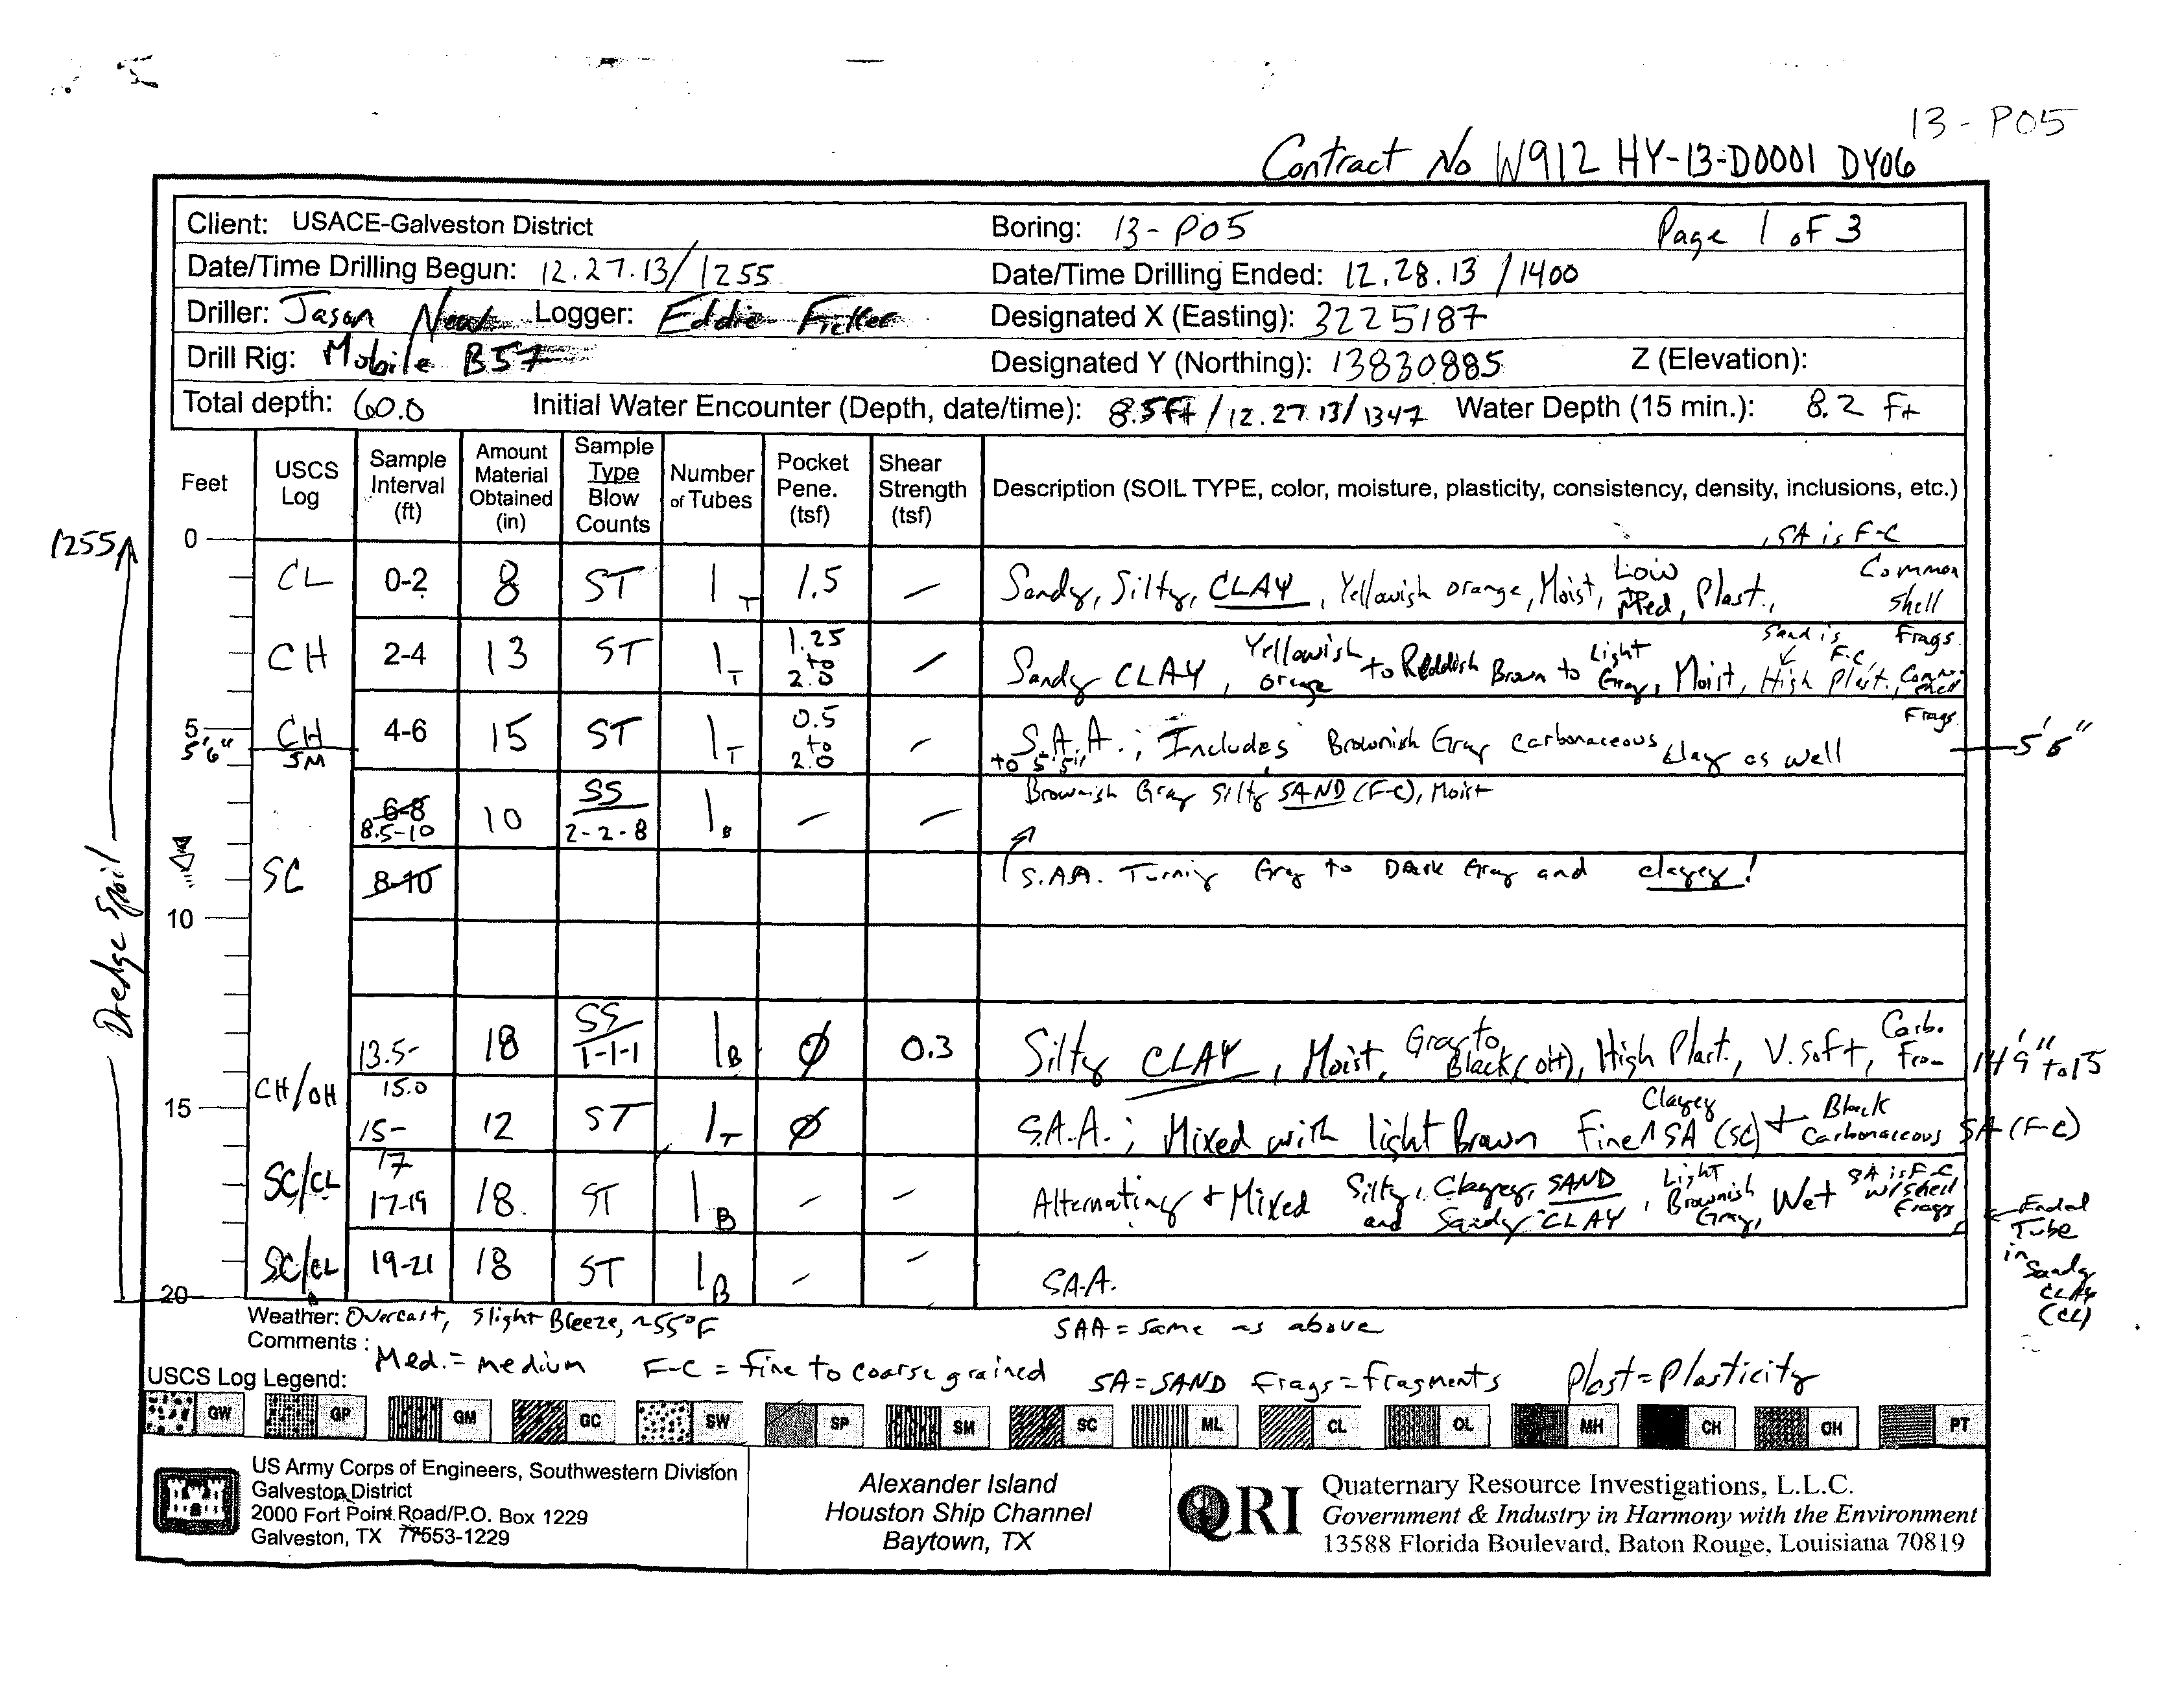 13-P05
Contract No W912 HY-13-D0001 DY06
Client: USACE-Galveston District Boring: 13-P05 Page 1 of 3
Date/Time Drilling Begun: 12.27.13/1255 Date/Time Drilling Ended: 12.28.13/1400
Driller: Jason Logger: Eddie Designated X (Easting): 3225187
Drill Rig: Mobile B57 Designated Y (Northing): 13830885 Z (Elevation):
Total depth: 60.0 Initial Water Encounter (Depth, date/time): 8.5ft/12.27.13/1347 Water Depth (15 min.): 8.2 Ft
Feet USCS Log Sample Interval (ft) Amount Material Obtained (in) Sample Type Blow Counts Number of Tubes Pocket Pene. (tsf) Shear Strength (tsf) Description (SOIL TYPE, color, moisture, plasticity, consistency, density, inclusions, etc.)
1255 0 , SA is F-C
CL 0-2 8 ST 1T 1.5 – Sandy, Silty, CLAY, Yellowish orange, Moist, Low Med, Plast., Common Shell Frags.
CH 2-4 13 ST 1T 1.25 to 2.0 – Sandy CLAY, Yellowish orange to Reddish Brown to Light Gray, Moist, High Plast., Sand is F-C, Common Shell Frags.
5 5'6" CH SM 4-6 15 ST 1T 0.5 to 2.0 – S.A.A.; Includes Brownish Gray Carbonaceous clay as well 5'6"
to 5'5"
6-8 8.5-10 10 SS 2-2-8 1B – – Brownish Gray Silty SAND (F-C), Moist
SC 8-10 S.A.A. Turning Gray to Dark Gray and clayey!
10
Dredge Spoil
13.5-15.0 18 SS 1-1-1 1B Ø 0.3 Silty CLAY, Moist, Gray to Black (OH), High Plast., V. Soft, Carb. From 14'9" to 15
CH/OH
15 15-17 12 ST 1T Ø S.A.A.; Mixed with light Brown Fine Clayey SA (SC) + Black Carbonaceous SA (F-C)
SC/CL 17-19 18 ST 1B – – Alternating + Mixed Silty, Clayey, SAND and Sandy CLAY, Light Brownish Gray, Wet SA is F-C w/shell Frags
Ended Tube in Sandy CLAY (CL)
SC/CL 19-21 18 ST 1B – – SA.A.
20
Weather: Overcast, Slight Breeze, ~55°F SAA = Same as above
Comments: Med. = medium F-C = fine to coarse grained SA = SAND Frags = fragments Plast = Plasticity
USCS Log Legend:
GW GP GM GC SW SP SM SC ML CL OL MH CH OH PT
US Army Corps of Engineers, Southwestern Division
Galveston District
2000 Fort Point Road/P.O. Box 1229
Galveston, TX 77553-1229
Alexander Island
Houston Ship Channel
Baytown, TX
QRI
Quaternary Resource Investigations, L.L.C.
Government & Industry in Harmony with the Environment
13588 Florida Boulevard, Baton Rouge, Louisiana 70819